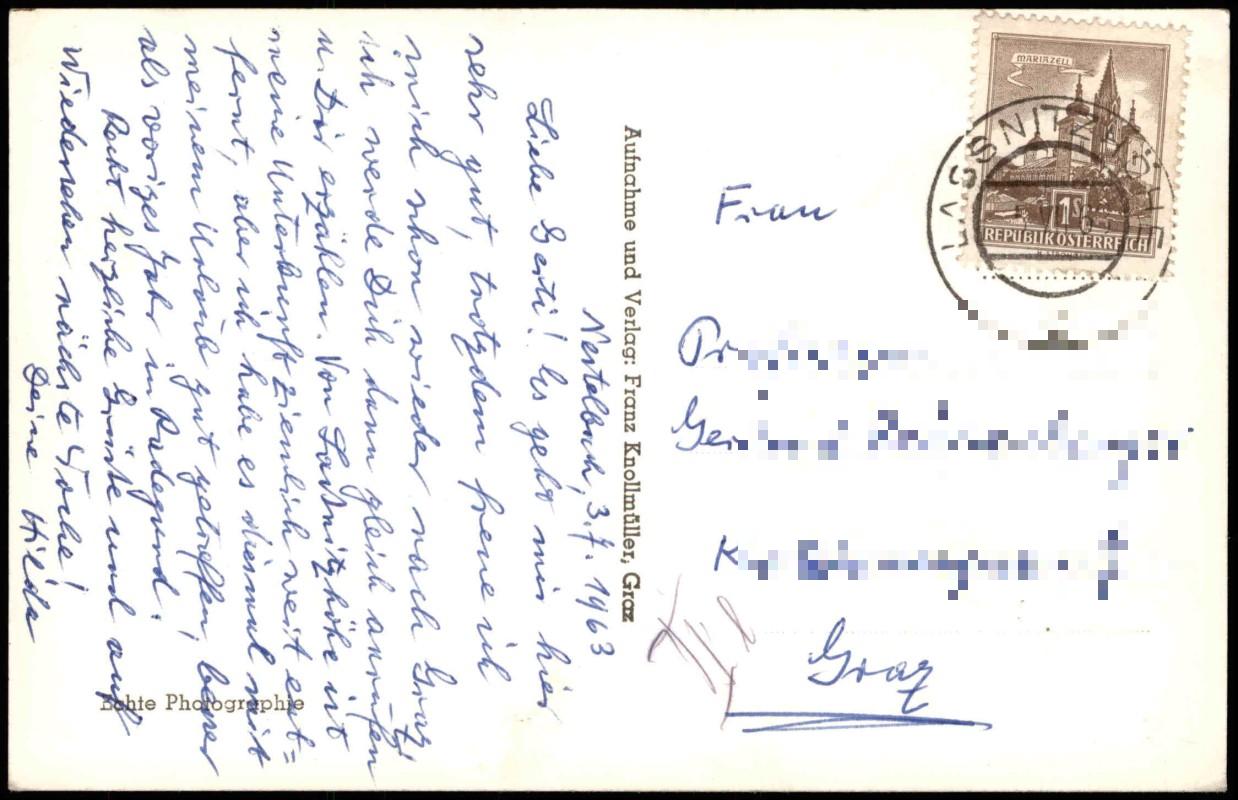 Nestelbach, 3.7.1963
Liebe Gerti! Es geht mir hier
sehr gut, trotzdem freue ich
mich schon wieder nach Graz!
ich werde Dich dann gleich anrufen
u. Dir erzählen. Von Laßnitzhöhe ist
meine Unterkunft ziemlich weit ent=
fernt, aber ich habe es diesmal mit
meinem Urlaub gut getroffen, besser
als voriges Jahr in Radegund.
Recht herzliche Grüße und auf
Wiedersehen nächste Woche!
Deine Hilda
Echte Photographie
Aufnahme und Verlag: Franz Knollmüller, Graz
MARIAZELL
1S
REPUBLIK ÖSTERREICH
LASSNITZHÖHE
Frau
Graz